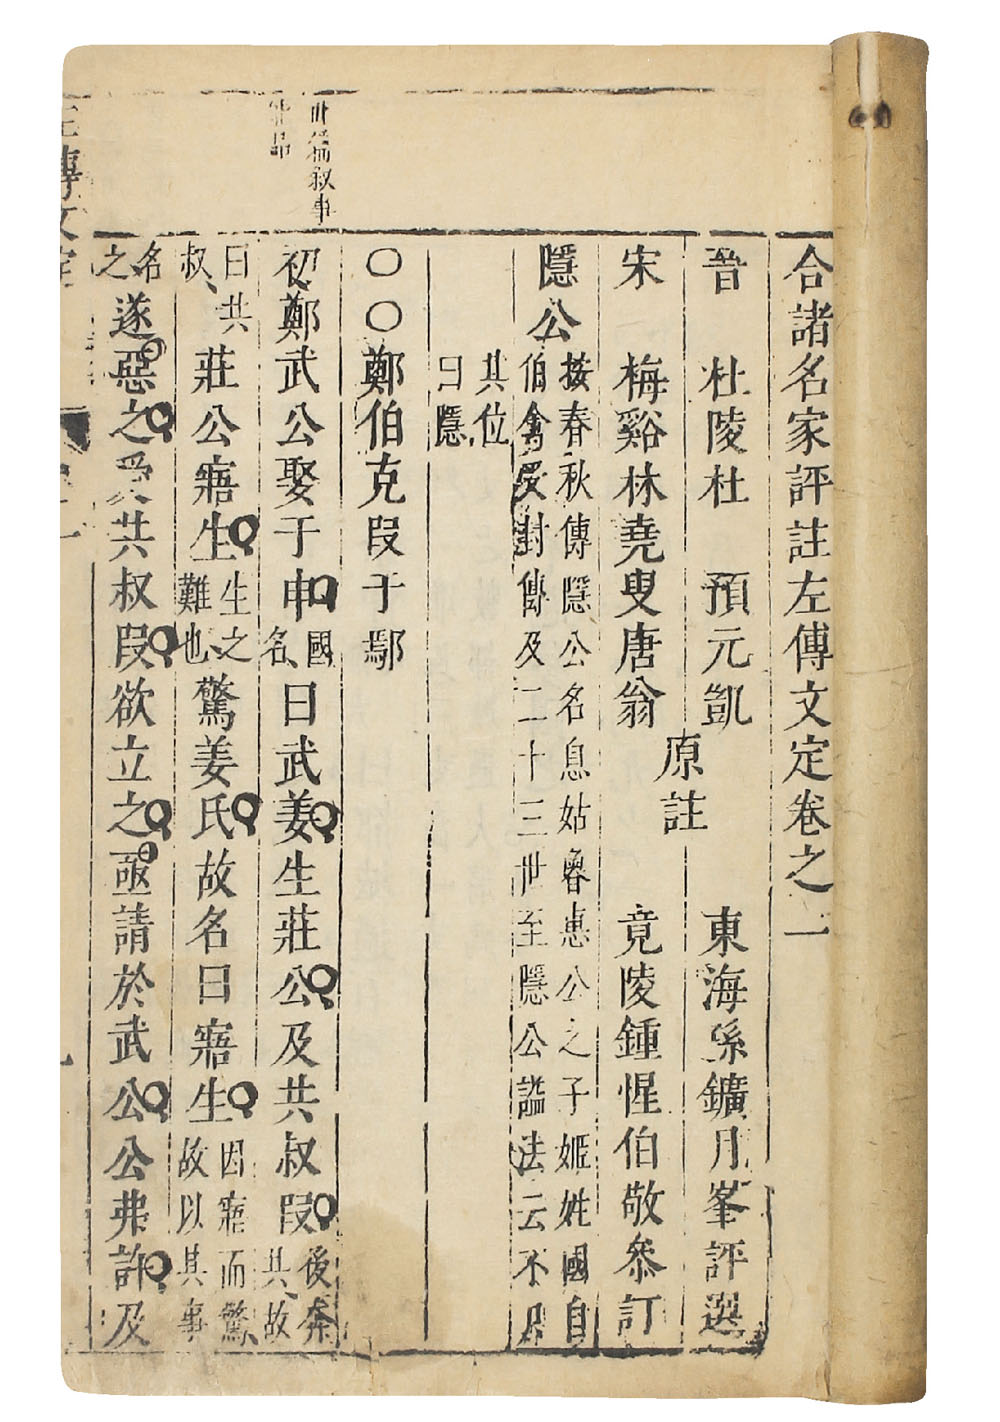 合諸名家評註左傳文定卷之一
晉 杜陵杜 預元凱
宋 梅谿林堯叟唐翁
原註
東海孫鑛月峯評選
竟陵鍾惺伯敬叅訂
隱公 按春秋傳隱公名息姑魯惠公之子姬姓國自
伯禽受封傳及二十三世至隱公謚法云不尸
其位
曰隱
〇〇鄭伯克段于鄢
此篇叙事
初鄭武公娶于申國名曰武姜生莊公及共叔段後奔共故
曰共叔莊公寤生生之難也驚姜氏故名曰寤生因寤而驚故以其事
名之遂惡之愛共叔段欲立之亟請於武公公弗許及